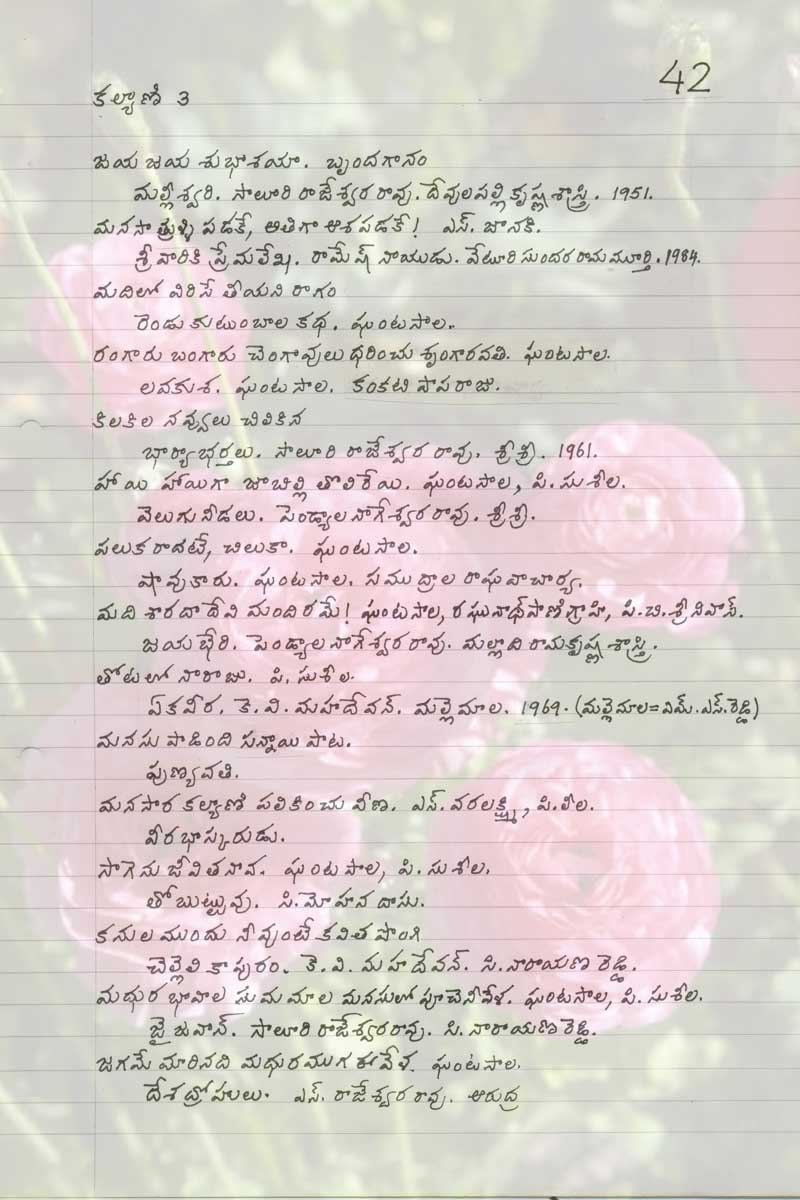 42
కల్యాణి 3
జయ జయ శుభాశయా. బృందగానం
మల్లీశ్వరి. సాలూరి రాజేశ్వర రావు. దేవులపల్లి కృష్ణ శాస్త్రి. 1951.
మనసా త్రుళ్ళి పడకే, అతిగా ఆశపడకే! ఎస్. జానకి.
శ్రీవారికి ప్రేమలేఖ. రామేష్ నాయుడు. వేటూరి సుందర రామమూర్తి. 1984.
మదిలో విరిసే తీయని రాగం
రెండు కుటుంబాల కథ. ఘంటసాల.
రంగారు బంగారు చెంగావులు ధరించు శృంగారవతి. ఘంటసాల.
లవకుశ. ఘంటసాల. కంకటి పాపరాజు.
కిలకిల నవ్వులు చిలికిన
భార్యాభర్తలు. సాలూరి రాజేశ్వర రావు. శ్రీశ్రీ. 1961.
హాయి హాయిగా జాబిల్లి తొలిరేయి. ఘంటసాల, పి. సుశీల.
వెలుగునీడలు. పెండ్యాల నాగేశ్వర రావు. శ్రీశ్రీ.
పలుకరాదటే, చిలుకా. ఘంటసాల.
షావుకారు. ఘంటసాల. సముద్రాల రాఘవాచార్య.
మది శారదాదేవి మందిరమే! ఘంటసాల, రఘునాథ్ పాణిగ్రాహి, పి.బి.శ్రీనివాస్.
జయభేరి. పెండ్యాల నాగేశ్వర రావు. మల్లాది రామకృష్ణ శాస్త్రి.
తోటలో నారాజు. పి. సుశీల.
ఏకవీర. కె. వి. మహదేవన్. మల్లెమాల. 1969. (మల్లెమాల=ఎమ్.ఎస్.రెడ్డి)
మనసు పాడింది సన్నాయి పాట.
పుణ్యవతి.
మనసార కల్యాణి పలికించు వీణ. ఎస్. వరలక్ష్మి, పి.లీల.
వీరభాస్కరుడు.
సాగెను జీవితనావ. ఘంటసాల, పి. సుశీల.
తోబుట్టువు. సి.మోహన దాసు.
కనుల ముందు నీవుంటే కవిత పొంగి
చెల్లెలి కాపురం. కె. వి. మహదేవన్. సి.నారాయణ రెడ్డి.
మధుర భావాల సుమమాల మనసులో పూచెనీవేళ. ఘంటసాల, పి. సుశీల.
జై జవాన్. సాలూరి రాజేశ్వరరావు. సి. నారాయణ రెడ్డి.
జగమే మారినది మధురముగ ఈవేళ. ఘంటసాల.
దేశద్రోహులు. ఎస్. రాజేశ్వర రావు. ఆరుద్ర